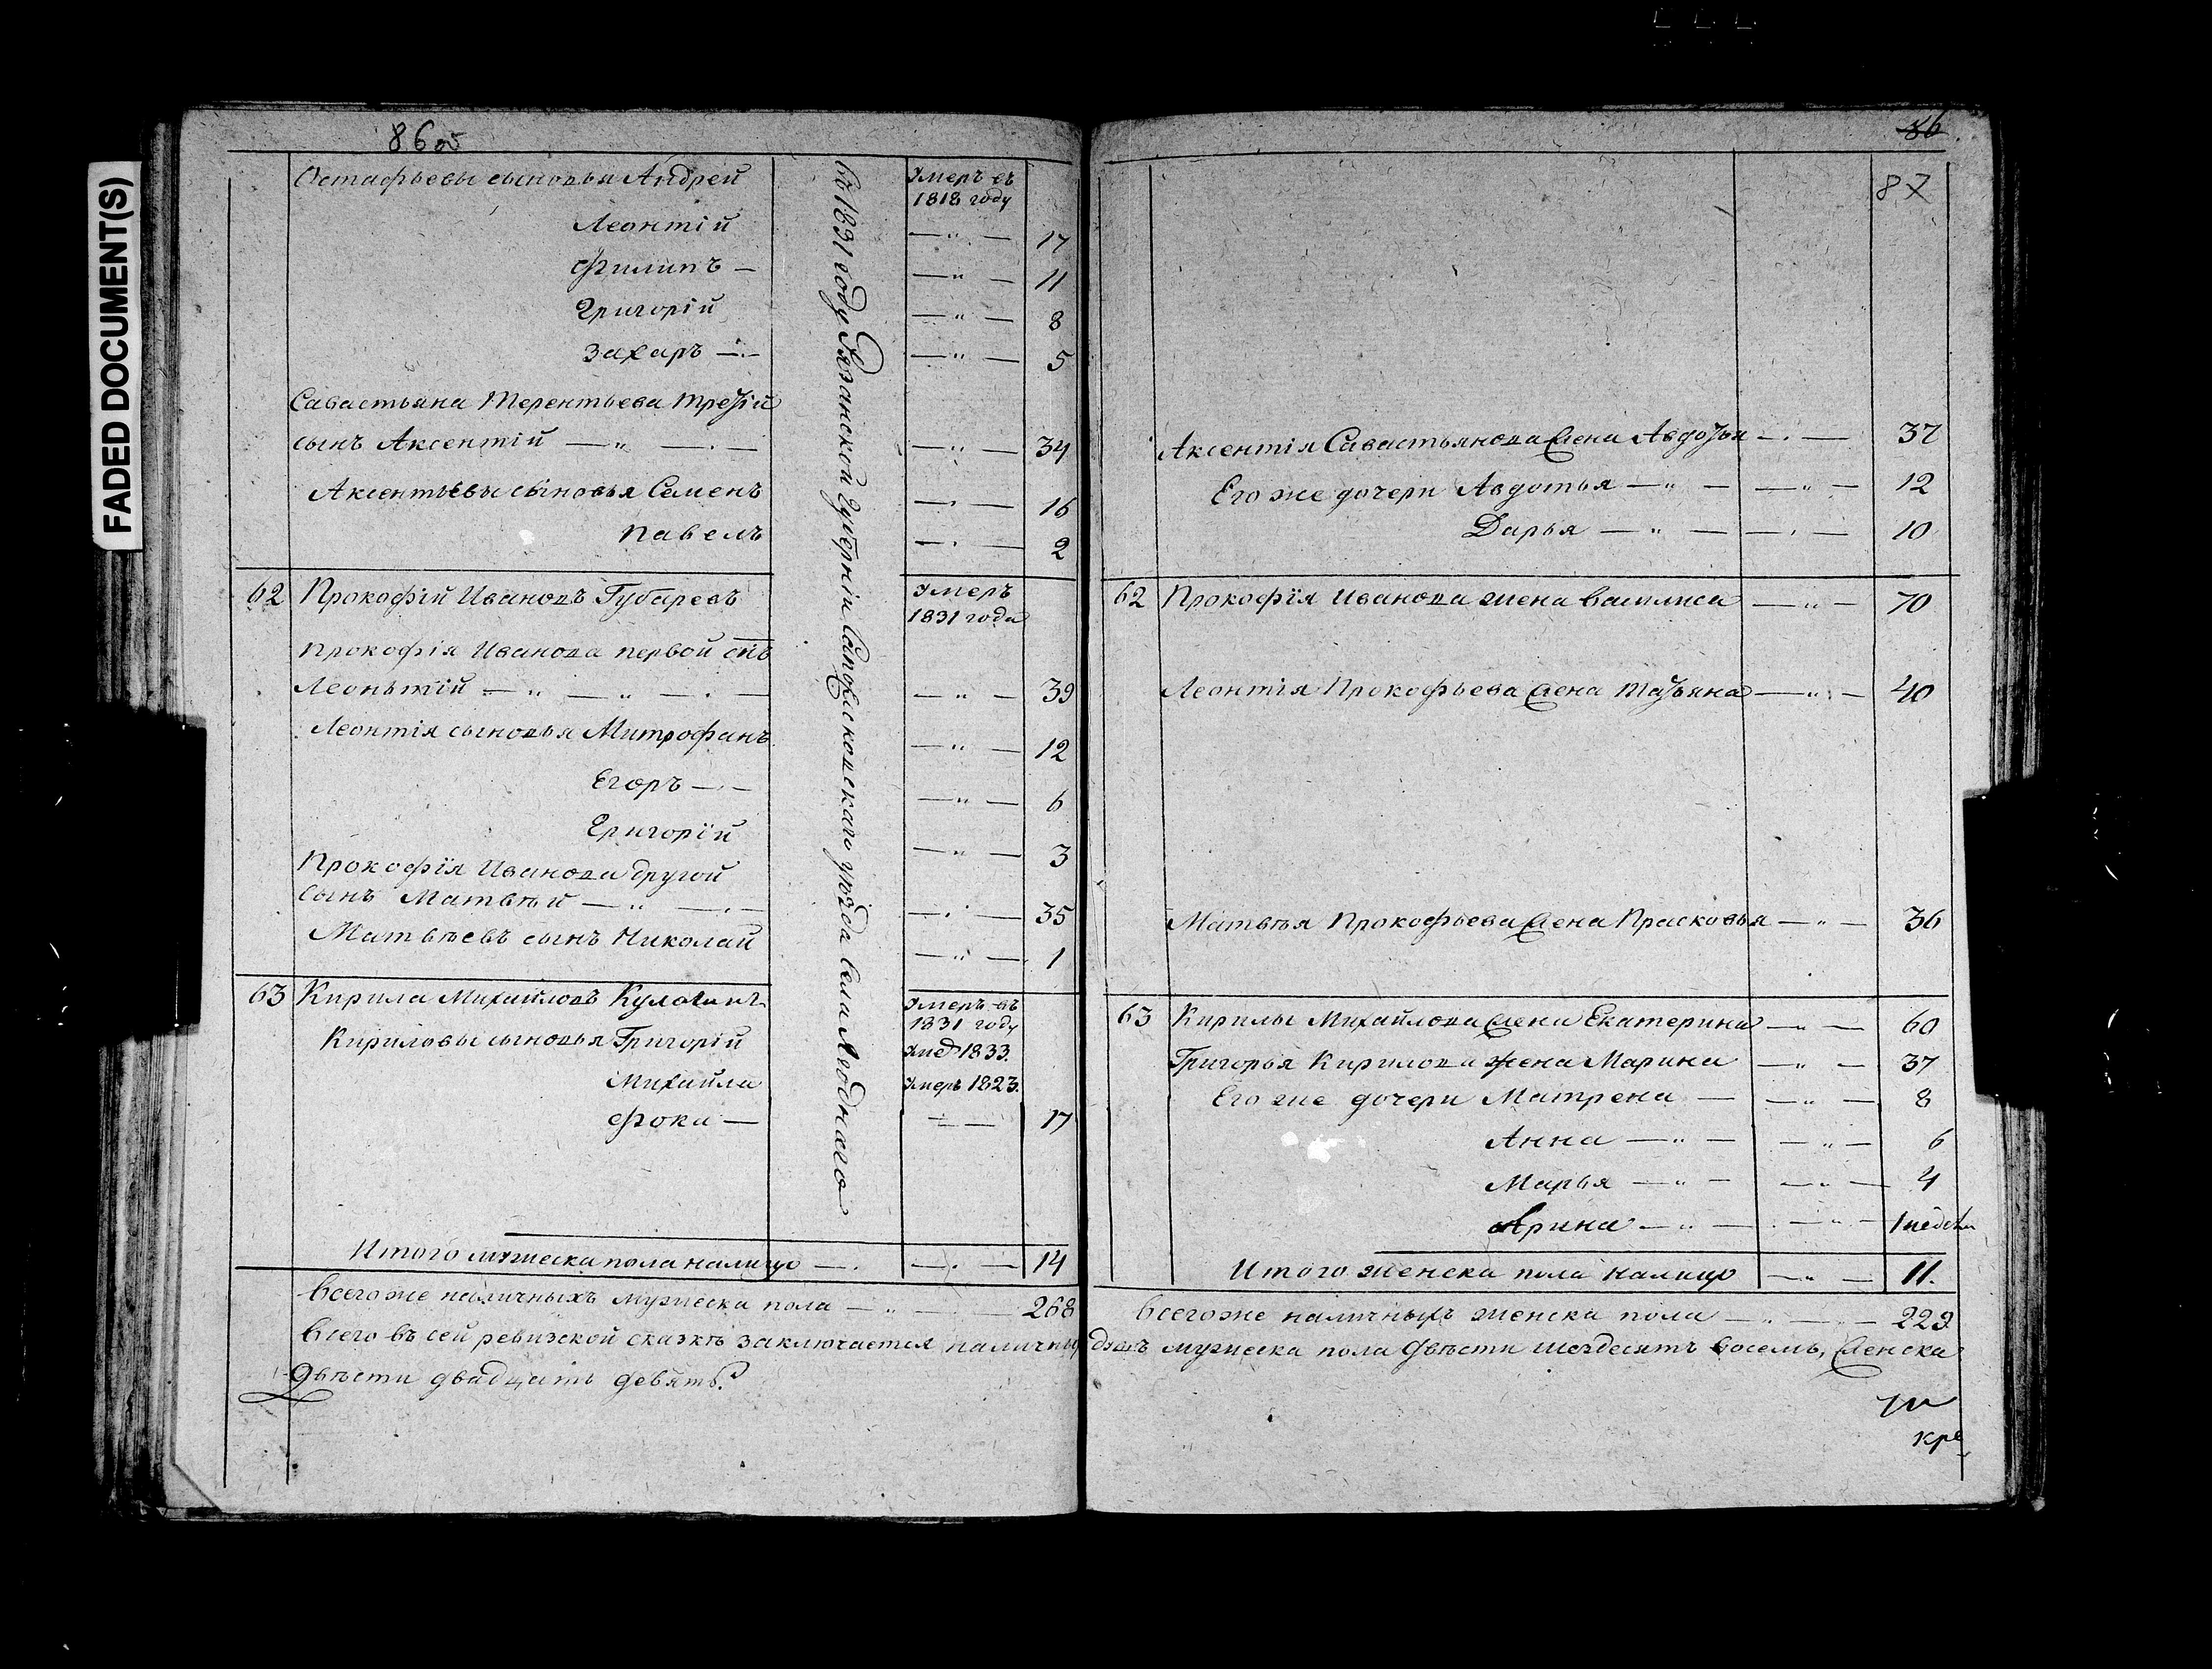 FADED DOCUMENT(S)
86об
Остафьевы сыновья Андрей
Умеръ въ
1818 году
Леонтій — " — 17
Филипъ — — " — 11
Григорій — " — 8
Захаръ — — " — 5
Савастьяна Терентьева третій
сынъ Аксентій — " — . — — " — 34
Аксентьевы сыновья Семенъ — . — 16
Павелъ — . — 2
62 Прокофій Ивановъ Губаревъ
Умеръ
1831 года
Прокофія Иванова первой снъ
Леонътій — " — " — . — — " — 39
Леонтія сыновья Митрофанъ — " — 12
Егоръ — . — — " — 6
Григорій — " — 3
Прокофія Иванова другой
сынъ Матвѣй — " — . — — . — 35
Матвѣевъ сынъ Николай — " — 1
63 Кирила Михайловъ
Умеръ въ
1831 году
Кириловы сыновья Григорій 1833.
Михайла Умеръ 1823.
Фока — — — 17
въ 1831 году Рязанской Губерніи Сапожсковскаго уѣзда села Ягоднаго
Итого мужеска пола налицо — . — . — 14
Всего же наличныхъ мужеска пола — " — — 268
86
87
Аксентія Савастьянова жена Авдотья — . — 37
Его же дочери Авдотья — " — — " — 12
Дарья — " — — . — 10
62 Прокофія Иванова жена Василиса — " — 70
Леонтія Прокофьева жена Татьяна — " — 40
Матвѣя Прокофьева жена Прасковья — " — 36
63 Кирилы Михайлова жена Екатерина — " — 60
Григорья Кирилова жена Марина — " — 37
Его же дочери Матрена — — " — 8
Анна — " — — " — 6
Марья — " — — " — 4
Арина — " — — " — 1
Итого женска пола налицо — " — 11.
Всего же наличныхъ женска пола — " — — 229
Всего въ сей ревизской сказкѣ заключается наличныхъ душъ мужеска пола двѣсти шездесятъ восемь, женска
двѣсти двадцать девять.
кре